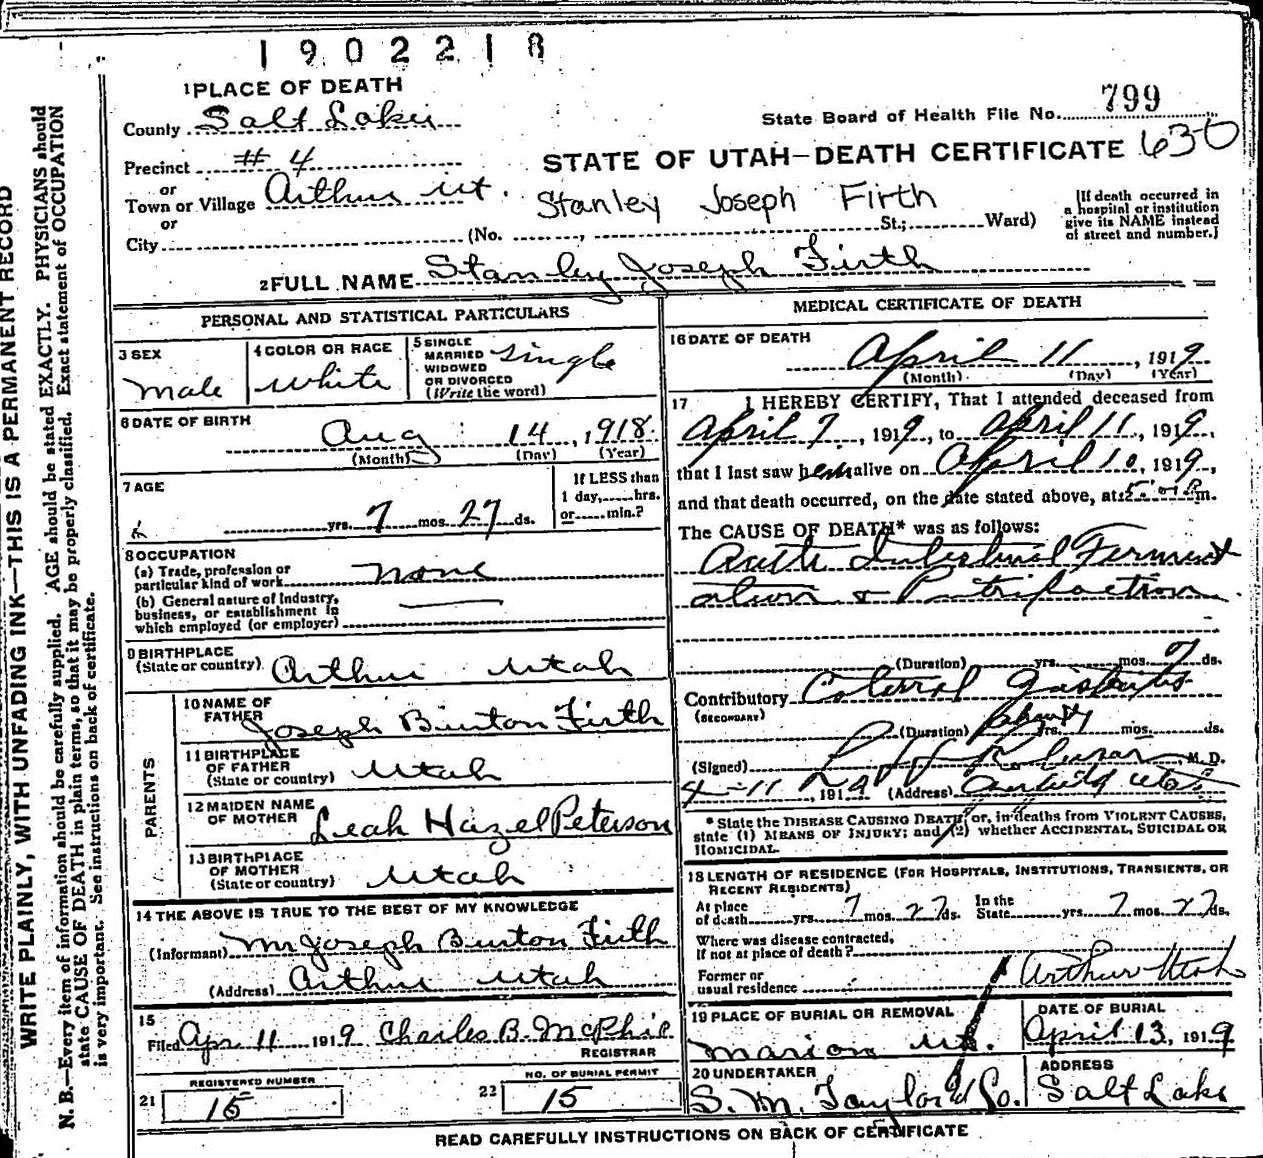 1902218
1 PLACE OF DEATH
County Salt Lake
State Board of Health File No. 799
Precinct #4
STATE OF UTAH—DEATH CERTIFICATE 630
or
Town or Village Arthur Ut.
Stanley Joseph Firth
or
City (No. , St.; Ward)
[If death occurred in
a hospital or institution
give its NAME instead
of street and number.]
2 FULL NAME Stanley Joseph Firth
PERSONAL AND STATISTICAL PARTICULARS
3 SEX
male
4 COLOR OR RACE
White
5 SINGLE
MARRIED
WIDOWED
OR DIVORCED
(Write the word)
single
6 DATE OF BIRTH
Aug 14, 1918
(Month) (Day) (Year)
7 AGE
yrs. 7 mos. 27 ds.
If LESS than
1 day, hrs.
or min.?
8 OCCUPATION
(a) Trade, profession or
particular kind of work none
(b) General nature of industry,
business, or establishment in
which employed (or employer)
9 BIRTHPLACE
(State or country) Arthur Utah
PARENTS
10 NAME OF
FATHER Joseph Burton Firth
11 BIRTHPLACE
OF FATHER
(State or country) Utah
12 MAIDEN NAME
OF MOTHER Leah Hazel Peterson
13 BIRTHPLACE
OF MOTHER
(State or country) Utah
14 THE ABOVE IS TRUE TO THE BEST OF MY KNOWLEDGE
(Informant) Mr Joseph Burton Firth
(Address) Arthur Utah
15
Filed Apr 11 1919 Charles B. McPhie
REGISTRAR
21 REGISTERED NUMBER
15
22 NO. OF BURIAL PERMIT
15
MEDICAL CERTIFICATE OF DEATH
16 DATE OF DEATH
April 11, 1919
(Month) (Day) (Year)
17 I HEREBY CERTIFY, That I attended deceased from
April 7, 1919, to April 11, 1919,
that I last saw him alive on April 10, 1919,
and that death occurred, on the date stated above, at m.
The CAUSE OF DEATH* was as follows:
Acute Intestinal Ferment
ation & Putrifaction
(Duration) yrs. mos. ds.
Contributory
(SECONDARY)
(Duration) yrs. mos. ds.
(Signed) M. D.
4-11, 1919 (Address)
* State the DISEASE CAUSING DEATH, or, in deaths from VIOLENT CAUSES,
state (1) MEANS OF INJURY; and (2) whether ACCIDENTAL, SUICIDAL OR
HOMICIDAL.
18 LENGTH OF RESIDENCE (FOR HOSPITALS, INSTITUTIONS, TRANSIENTS, OR
RECENT RESIDENTS)
At place
of death yrs. 7 mos. 27 ds.
In the
State yrs. 7 mos. 27 ds.
Where was disease contracted,
if not at place of death?
Former or
usual residence Arthur Utah
19 PLACE OF BURIAL OR REMOVAL
Marion Ut.
DATE OF BURIAL
April 13, 1919
20 UNDERTAKER
S. M. Taylor & Co.
ADDRESS
Salt Lake
READ CAREFULLY INSTRUCTIONS ON BACK OF CERTIFICATE
WRITE PLAINLY, WITH UNFADING INK—THIS IS A PERMANENT RECORD
N. B.—Every item of information should be carefully supplied. AGE should be stated EXACTLY. PHYSICIANS should
state CAUSE OF DEATH in plain terms, so that it may be properly classified. Exact statement of OCCUPATION
is very important. See instructions on back of certificate.